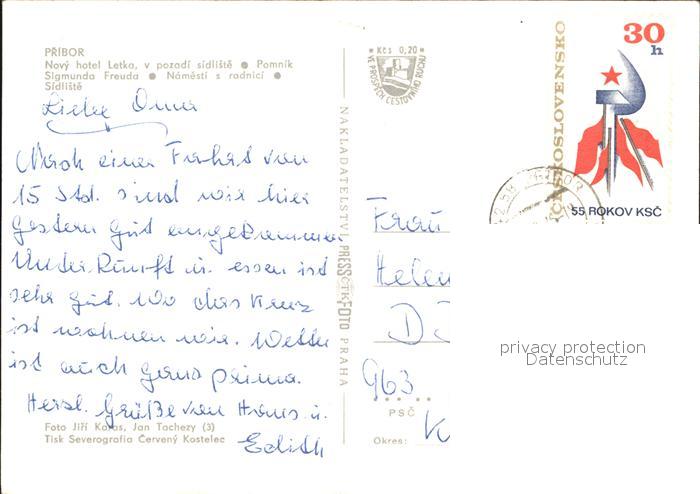 PŘÍBOR
Nový hotel Letka, v pozadí sídliště ● Pomník
Sigmunda Freuda ● Náměstí s radnicí ●
Sídliště
Liebe Oma
Nach einer Fahrt von
15 Std. sind wir hier
Gestern gut angekommen
Unterkunft u. essen ist
sehr gut. Wo das Kreuz
ist wohnen wir. Wetter
ist auch ganz prima.
Herzl. Grüße von Hans u.
Edith
Foto Jiří Karas, Jan Tachezy (3)
Tisk Severografia Červený Kostelec
NAKLADATELSTVÍ PRESSFOTO PRAHA
Kčs 0,20
VE PROSPĚCH CESTOVNÍHO RUCHU
ČESKOSLOVENSKO
30 h
55 ROKOV KSČ
Frau
Helen
963
PSČ
Okres:
privacy protection
Datenschutz